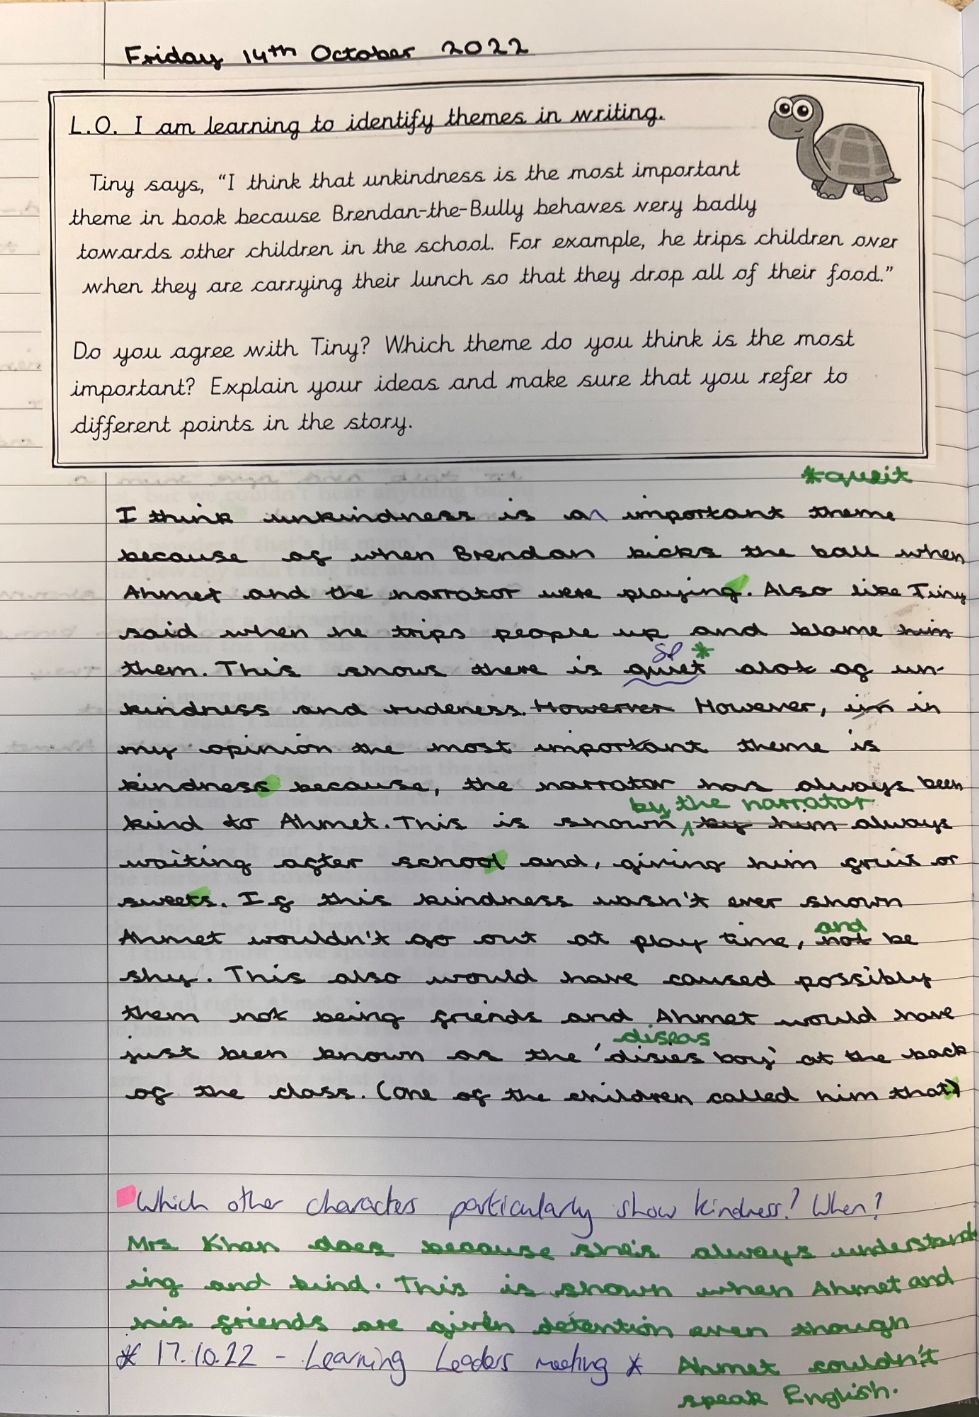 Friday 14th October 2022
L.O. I am learning to identify themes in writing.
Tiny says, "I think that unkindness is the most important
theme in book because Brendan-the-Bully behaves very badly
towards other children in the school. For example, he trips children over
when they are carrying their lunch so that they drop all of their food."
Do you agree with Tiny? Which theme do you think is the most
important? Explain your ideas and make sure that you refer to
different points in the story.
*queit
I think unkindness is an important theme
because of when Brendan kicks the ball when
Ahmet and the narrator were playing. Also like Tiny
said when he trips people up and blame him
them. This shows there is quiet alot of un-
sp *
kindness and rudeness. Howerver However, in
my opinion the most important theme is
kindness because, the narrator has always been
by the narrator
kind to Ahmet. This is shown by him always
waiting after school and, giving him fruit or
sweets. If this kindness wasn't ever shown
and
Ahmet wouldn't go out at play time, not be
shy. This also would have caused possibly
them not being friends and Ahmet would have
dispas
just been known as the 'disies boy' at the back
of the class. (one of the children called him that)
Which other characters particularly show kindness? When?
Mrs Khan does because she's always understand
ing and kind. This is shown when Ahmet and
his friends are given detention even though
* 17.10.22 - Learning Leaders meeting * Ahmet couldn't
speak English.